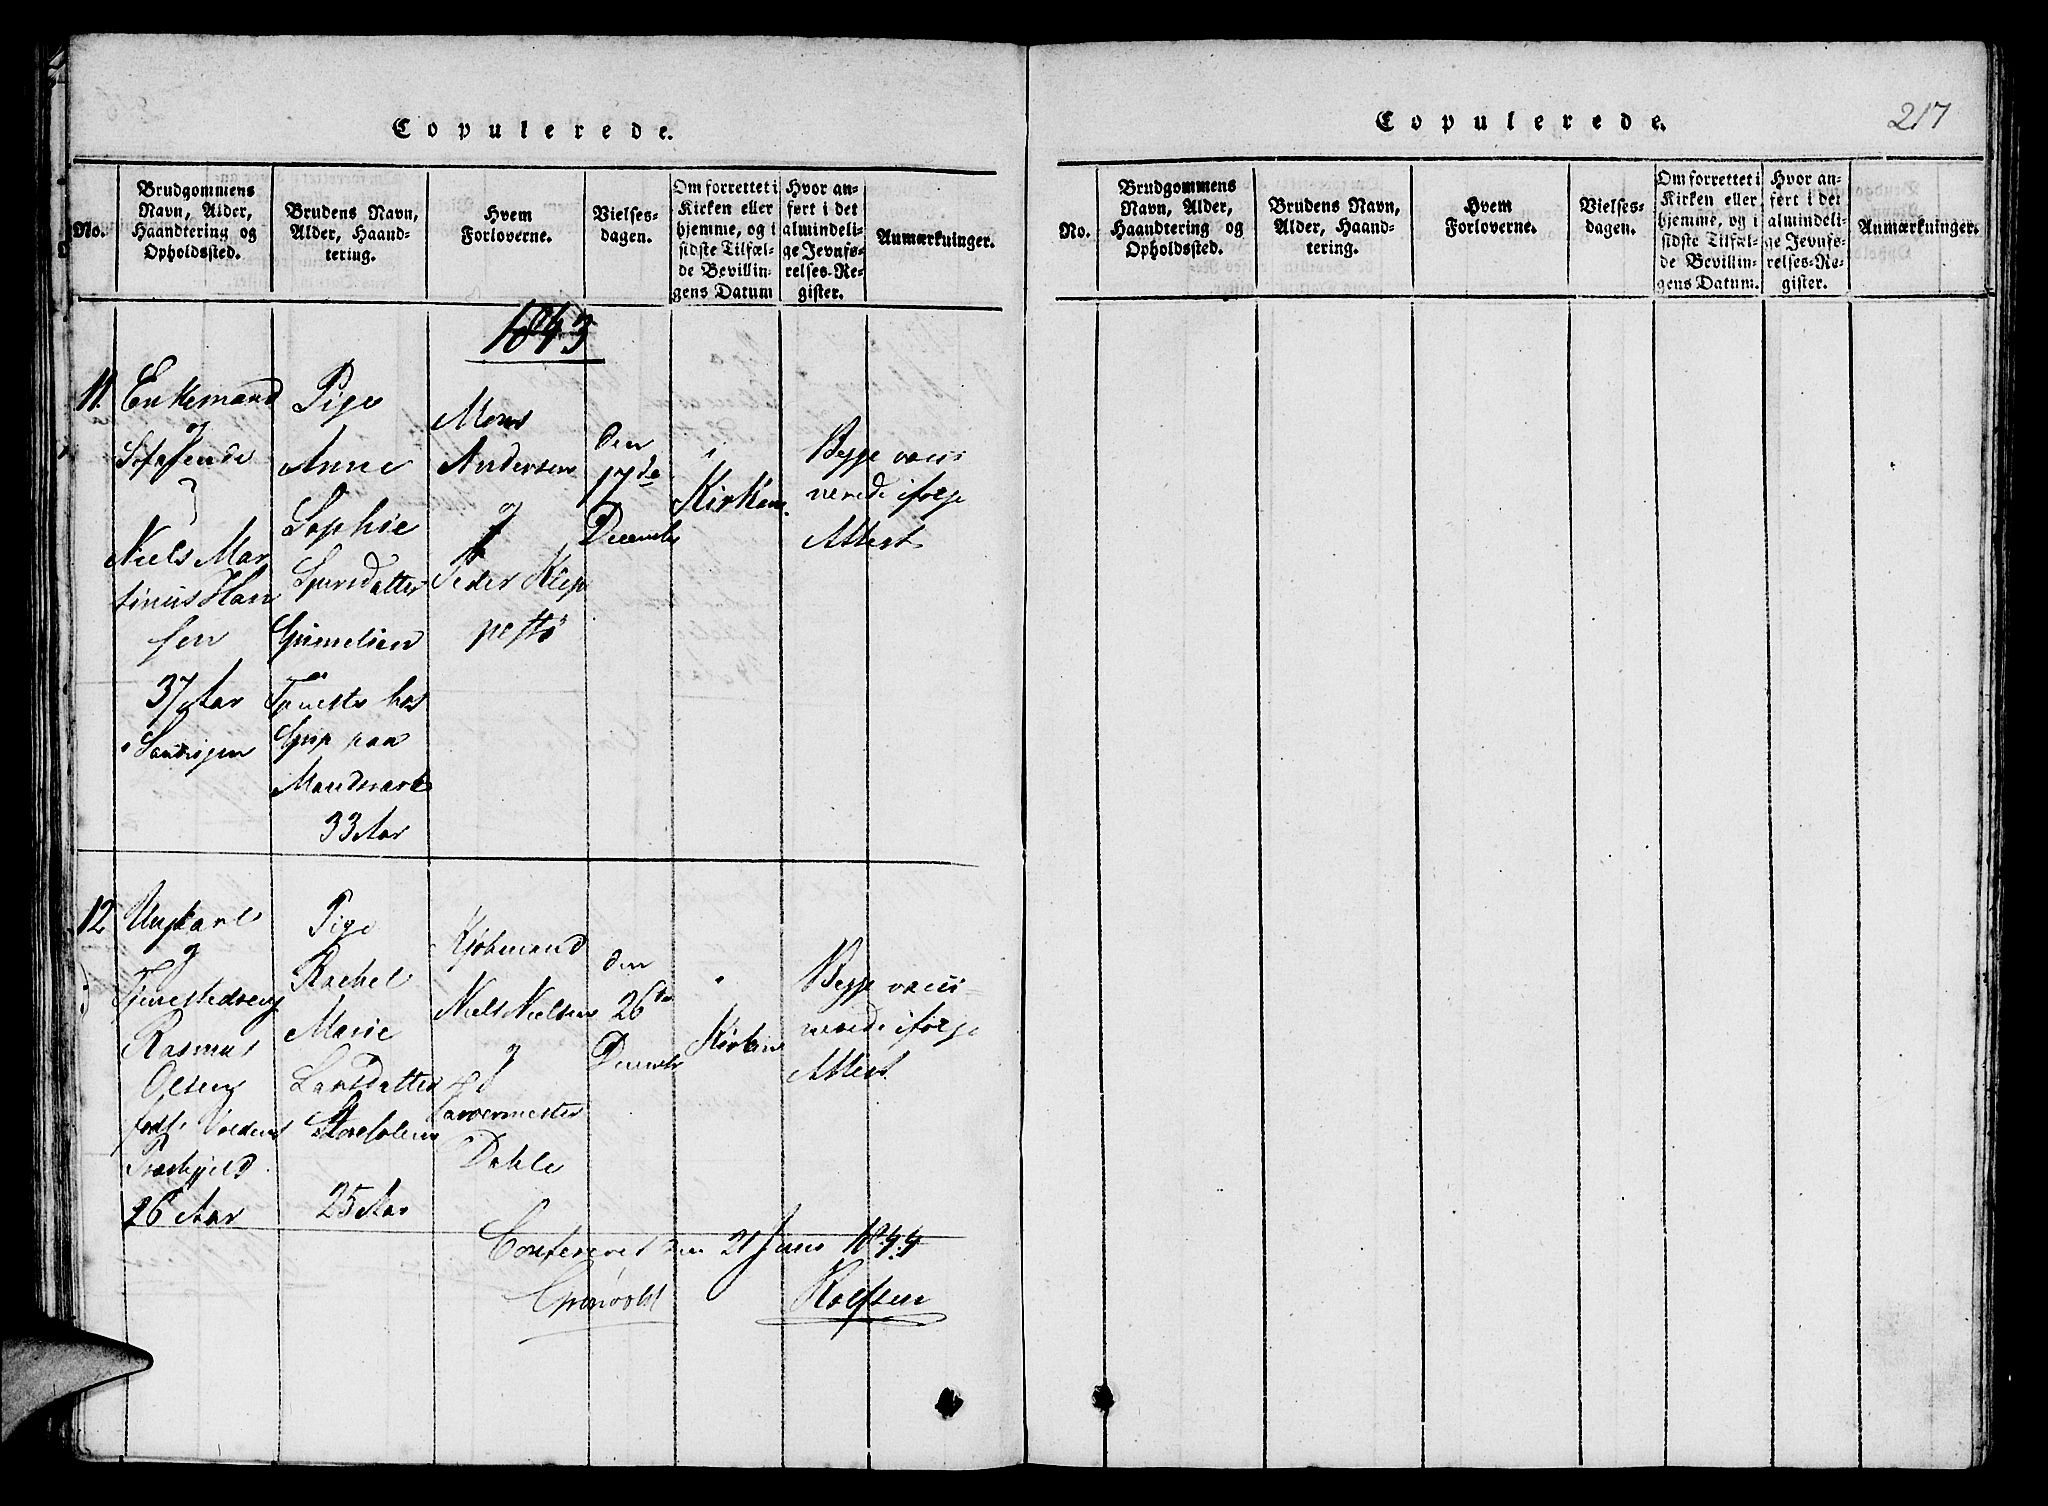 Copulerede.
No.
Brudgommens
Navn, Alder,
Haandtering og
Opholdssted.
Brudens Navn,
Alder, Haand-
tering.
Hvem
Forloverne.
Vielses-
dagen.
Om forrettet i
Kirken eller
hjemme, og i
sidste Tilfæl-
de Bevillin-
gens Datum
Hvor an-
ført i det
almindeli-
ge Jevnfø-
relses-Re-
gister.
Anmærkninger.
1843
11.
Enkemand
og
Søfarende
Niels Mar
tinus Han
sen
37 Aar
Pige
Anne
Sophie
33 Aar
Mons
Andersen
og
Peder Klep
pestø
den
17de
December
i
Kirken.
Begge vacci
nerede ifølge
Attest
12
Ungkarl
og
Rasmus
Olsen
Præstegjeld
26 Aar
Pige
Rachel
Marie
Larsdatter
25 Aar
Kjøbmand
Niels Nielsen
og
Garvermester
Dahle
den
26de
December
i
Kirken
Begge vacci-
nerede ifølge
Attest
Confereret den 21 Juni 1844
Grønvold
Rolfsen
Copulerede.
217
No.
Brudgommens
Navn, Alder,
Haandtering og
Opholdssted.
Brudens Navn,
Alder, Haand-
tering.
Hvem
Forloverne.
Vielses-
dagen.
Om forrettet i
Kirken eller
hjemme, og i
sidste Tilfæl-
de Bevillin-
gens Datum.
Hvor an-
ført i det
almindeli-
ge Jevnfø-
relses-Re-
gister.
Anmærkninger.